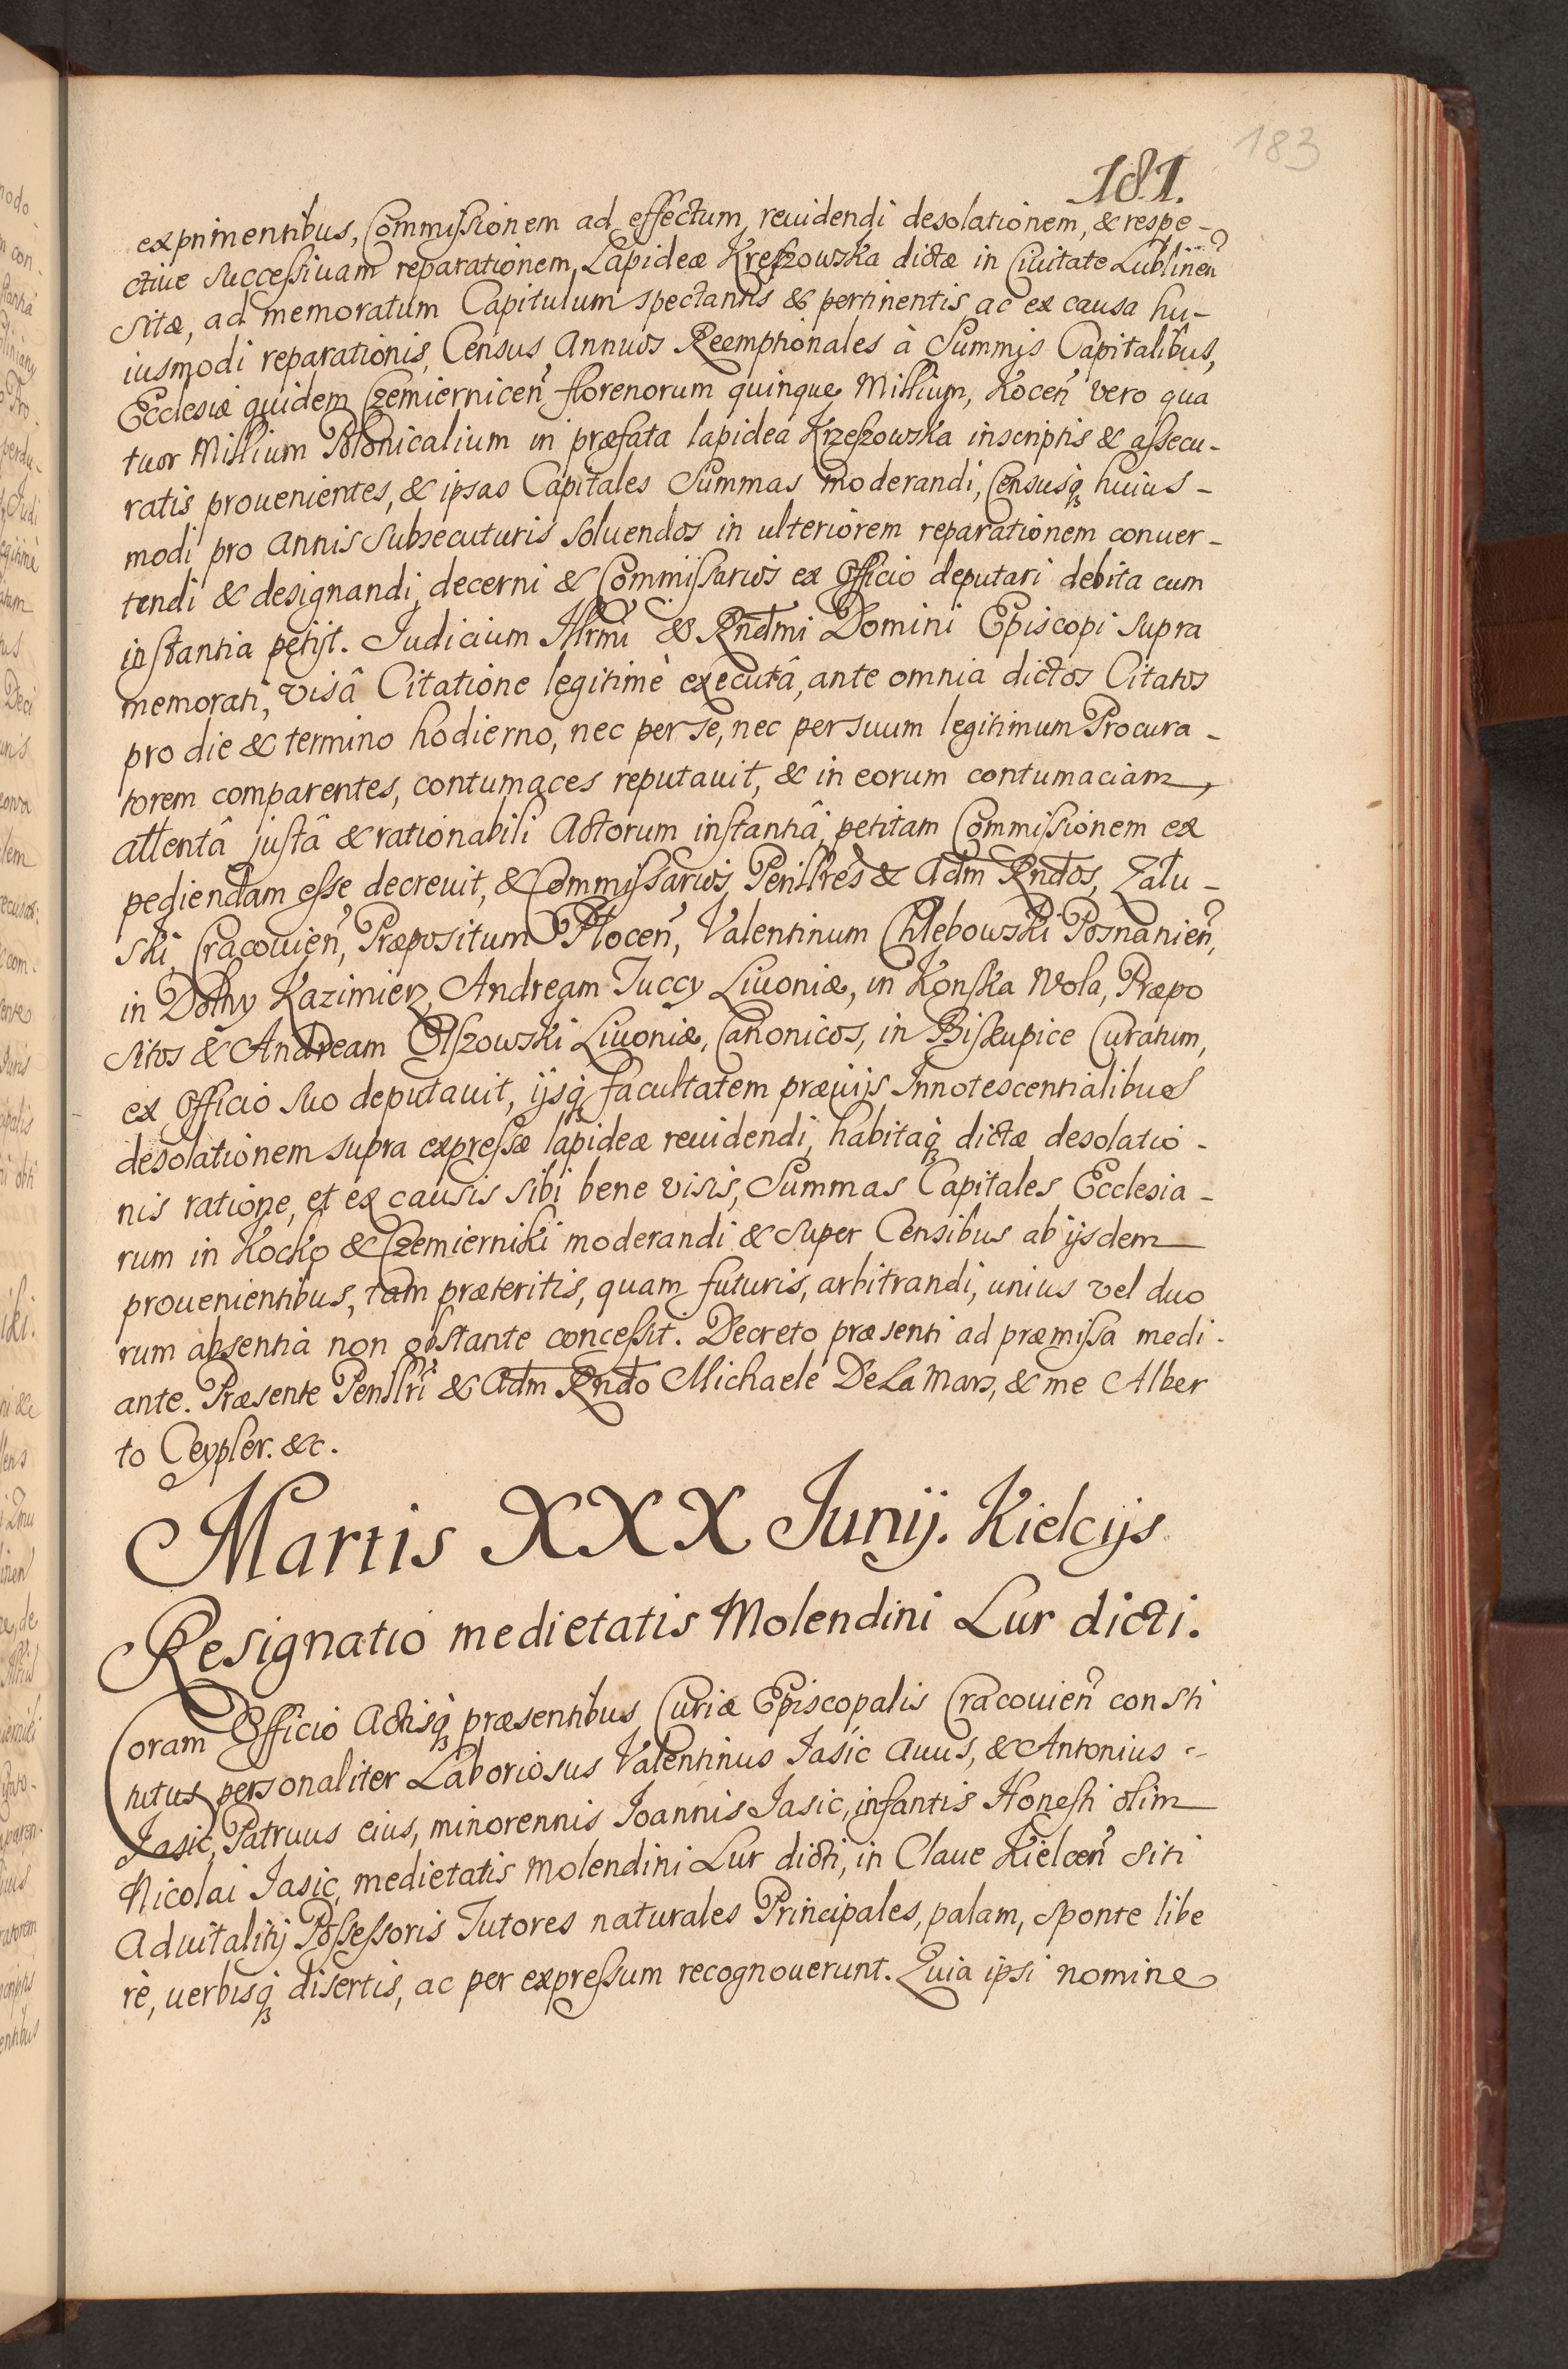 183
181.
exprimentibus, Commissionem ad effectum reuidendi desolationem, & respe-
ctiue successiuam reparationem Lapideæ Kreszowska dictæ in Ciuitate Lublineñ
sitæ, ad memoratum Capitulum spectantis & pertinentis, ac ex causa hu-
iusmodi reparationis, Census Annuos Reemptionales à Summis Capitalibus,
Ecclesiæ quidem Czemierniceñ florenorum quinque Millium, Koceñ vero qua
tuor Millium Polonicalium in præfata lapidea Krzeszowska inscriptis & assecu-
ratis prouenientes, & ipsas Capitales Summas moderandi, Censusq3 huius-
modi pro Annis subsecuturis soluendos in ulteriorem reparationem conuer-
tendi & designandi, decerni & Commissarios ex Officio deputari debita cum
instantia petijt. Judicium Illrmi & Rndmi Domini Episcopi supra
memorati, visâ Citatione legitimè executâ, ante omnia dictos Citatos
pro die & termino hodierno, nec per se, nec per suum legitimum Procura-
torem comparentes, contumaces reputauit, & in eorum contumaciam,
attentâ justâ & rationabili Actorum instantiâ, petitam Commissionem ex
pediendam esse decreuit, & Commissarios Penillres & Adm Rndos, Zału-
ski, Cracouieñ, Præpositum Ploceñ, Valentinum Chlebowski Posnanieñ,
in Dolny Kazimierz, Andream Tuccy Liuoniæ, in Konska Wola, Præpo
sitos & Andream Olszowski Liuoniæ, Canonicos, in Biskupice Curatum,
ex Officio suo deputauit, ijsq3 facultatem præuijs Innotescentialibus
desolationem supra expressæ lapideæ reuidendi, habitaq3 dictæ desolatio-
nis ratione, et ex causis sibi bene visis, Summas Capitales Ecclesia-
rum in Kocko & Czemierniki moderandi & super Censibus ab ijsdem
prouenientibus, tam præteritis, quam futuris, arbitrandi, unius vel duo
rum absentia non obstante concessit. Decreto præsenti ad præmissa medi-
ante. Præsente Penillri & Adm Rndo Michaele De La Mars, & me Alber
to Ceypler. &c.
Martis XXX Junij. Kielcijs
Resignatio medietatis Molendini Lur dicti.
Coram Officio Actisq3 præsentibus Curiæ Episcopalis Cracouieñ consti
tutus personaliter Laboriosus Valentinus Jasic Auus, & Antonius
Jasic, Patruus eius, minorennis Joannis Jasic, infantis Honesti olim
Nicolai Jasic, medietatis Molendini Lur dicti, in Claue Kielceñ siti
Aduitalitij Possessoris Tutores naturales Principales, palam, sponte libe
rè, uerbisq3 disertis, ac per expressum recognouerunt. Quia ipsi nomine